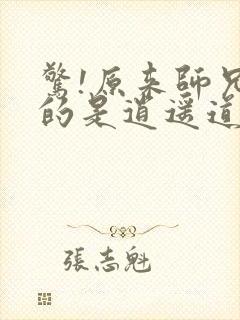 驚!原來師兄
的是逍遥道
張志魁